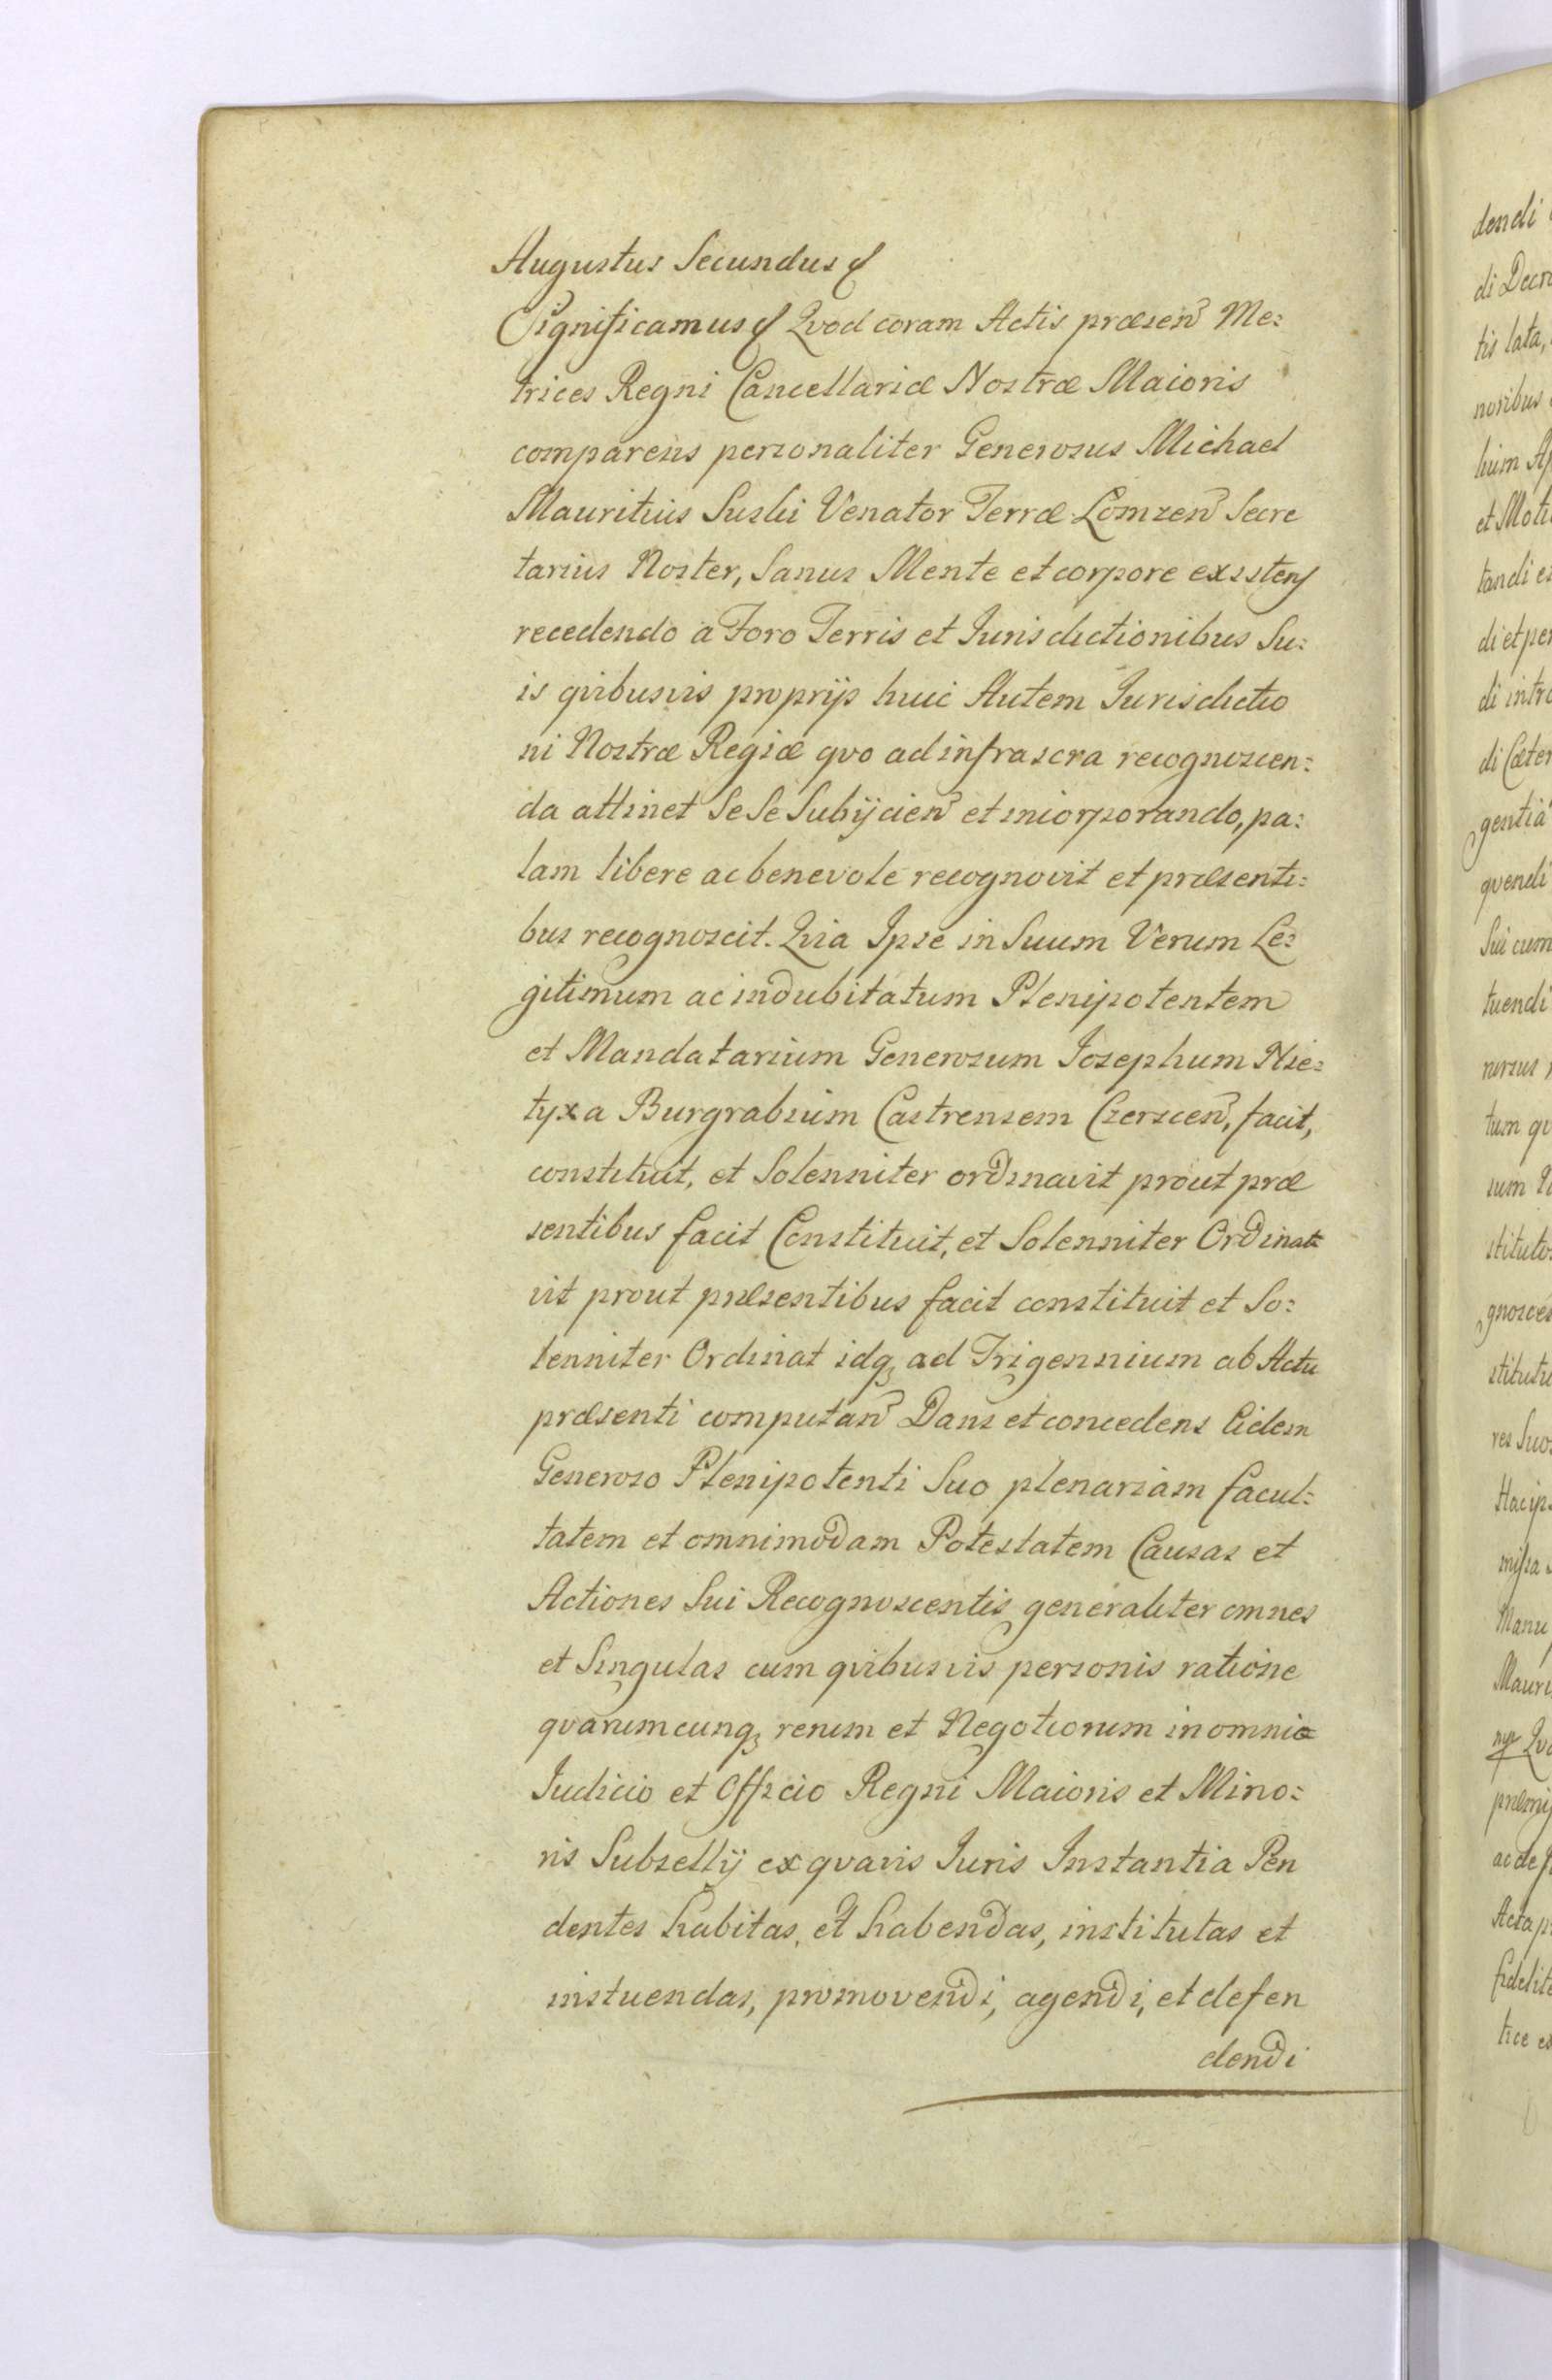 Augustus Secundus &
Significamus & Qvod coram Actis præsen Me:
trices Regni Cancellariæ Nostræ Maioris
comparens personaliter Generosus Michael
Mauritius Suski Venator Terræ Lomzen Secre
tarius Noster, Sanus Mente et corpore existens
recedendo a Foro Terris et Iurisdictionibus Su:
is qvibusvis proprijs huic Autem Iurisdictio
ni Nostræ Regiæ qvo ad infrascra recognoscen:
da attinet Se Se Subijcien et incorporando, pa:
lam libere ac benevole recognovit et præsenti:
bus recognoscit. Qvia Ipse in Suum Verum Le:
gitimum ac indubitatum Plenipotentem
et Mandatarium Generosum Iosephum Nie:
tyxa Burgrabium Castrensem Czerscen, facit,
constituit, et Solenniter ordinavit prout præ
sentibus facit Constituit, et Solenniter Ordinat
vit prout præsentibus facit constituit et So:
lenniter Ordinat idq ad Trigennium ab Actu
præsenti computan Dans et concedens Eidem
Generoso Plenipotenti Suo plenariam facul:
tatem et omnimodam Potestatem Causas et
Actiones Sui Recognoscentis generaliter omnes
et Singulas cum qvibusvis personis ratione
qvarumcunq rerum et Negotiorum in omnio
Iudicio et Officio Regni Maioris et Mino:
ris Subsellij ex qvavis Iuris Instantia Pen
dentes habitas, et habendas, institutas et
instuendas, promovendi, agendi, et defen
dendi
dendi
di Decre
tis lata,
noribus
et Moti
tandi
di et per
di intro
di Cæter
gentia
qvendi
Sui cum
tuendi
rursus
tum
sum
stituto
gnosce
stitutu
res Suo
missa
Manu
Mauri